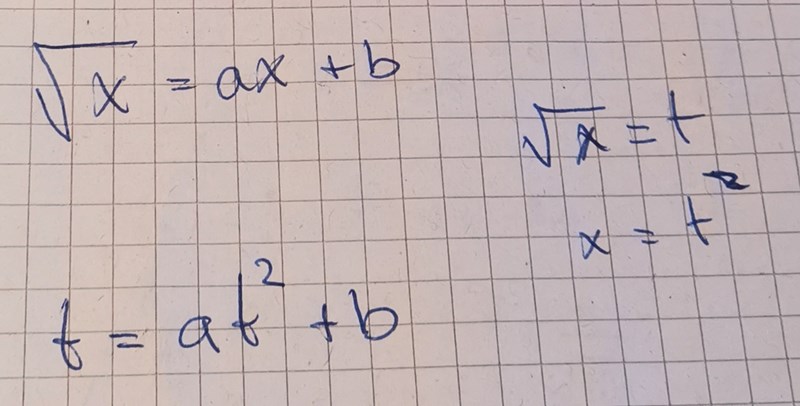 √x = ax + b
√x = t
x = t²
t = at² + b